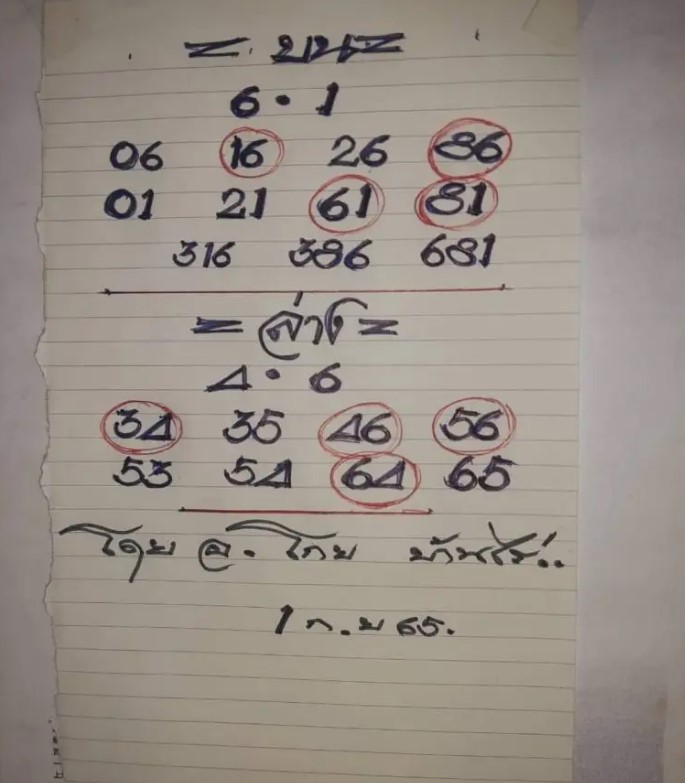 = บน =
6 · 1
06 16 26 86
01 21 61 81
316 386 681
= ล่าง =
4 · 6
34 35 46 56
53 54 64 65
โดย อ. โทย บ้านไร่..
1 ก.ย 65.